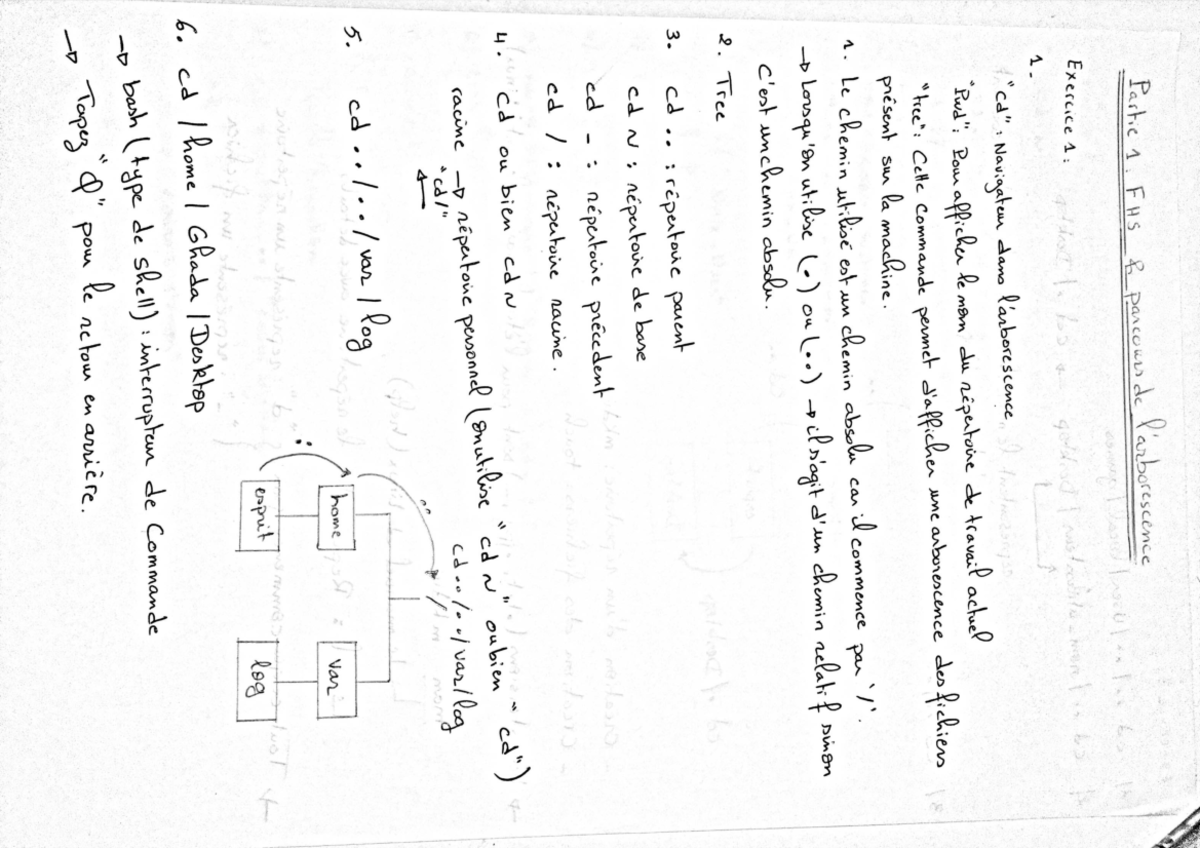 Partie 1. FHS & parcours de l'arborescence
Exercice 1:
1.
"cd": Navigateur dans l'arborescence
"Pwd": Pour afficher le nom du répertoire de travail actuel
"tree": Cette commande permet d'afficher une arborescence des fichiers
présent sur la machine.
1. Le chemin utilisé est un chemin absolu car il commence par "/".
→ Lorsqu'on utilise (.) ou (..) → il s'agit d'un chemin relatif sinon
c'est un chemin absolu.
2. Tree
3. cd .. : répertoire parent
cd ~ : répertoire de base
cd - : répertoire précédent
cd / : répertoire racine.
4. cd ou bien cd ~
racine → répertoire personnel (on utilise "cd ~" ou bien "cd")
"cd /"
←
5. cd ../../var/log
cd ../../var/log
/
..
..
home
var
esprit
log
6. cd /home/Ghada/Desktop
→ bash (type de shell) : interrupteur de Commande
→ Tapez "Q" pour le retour en arrière.